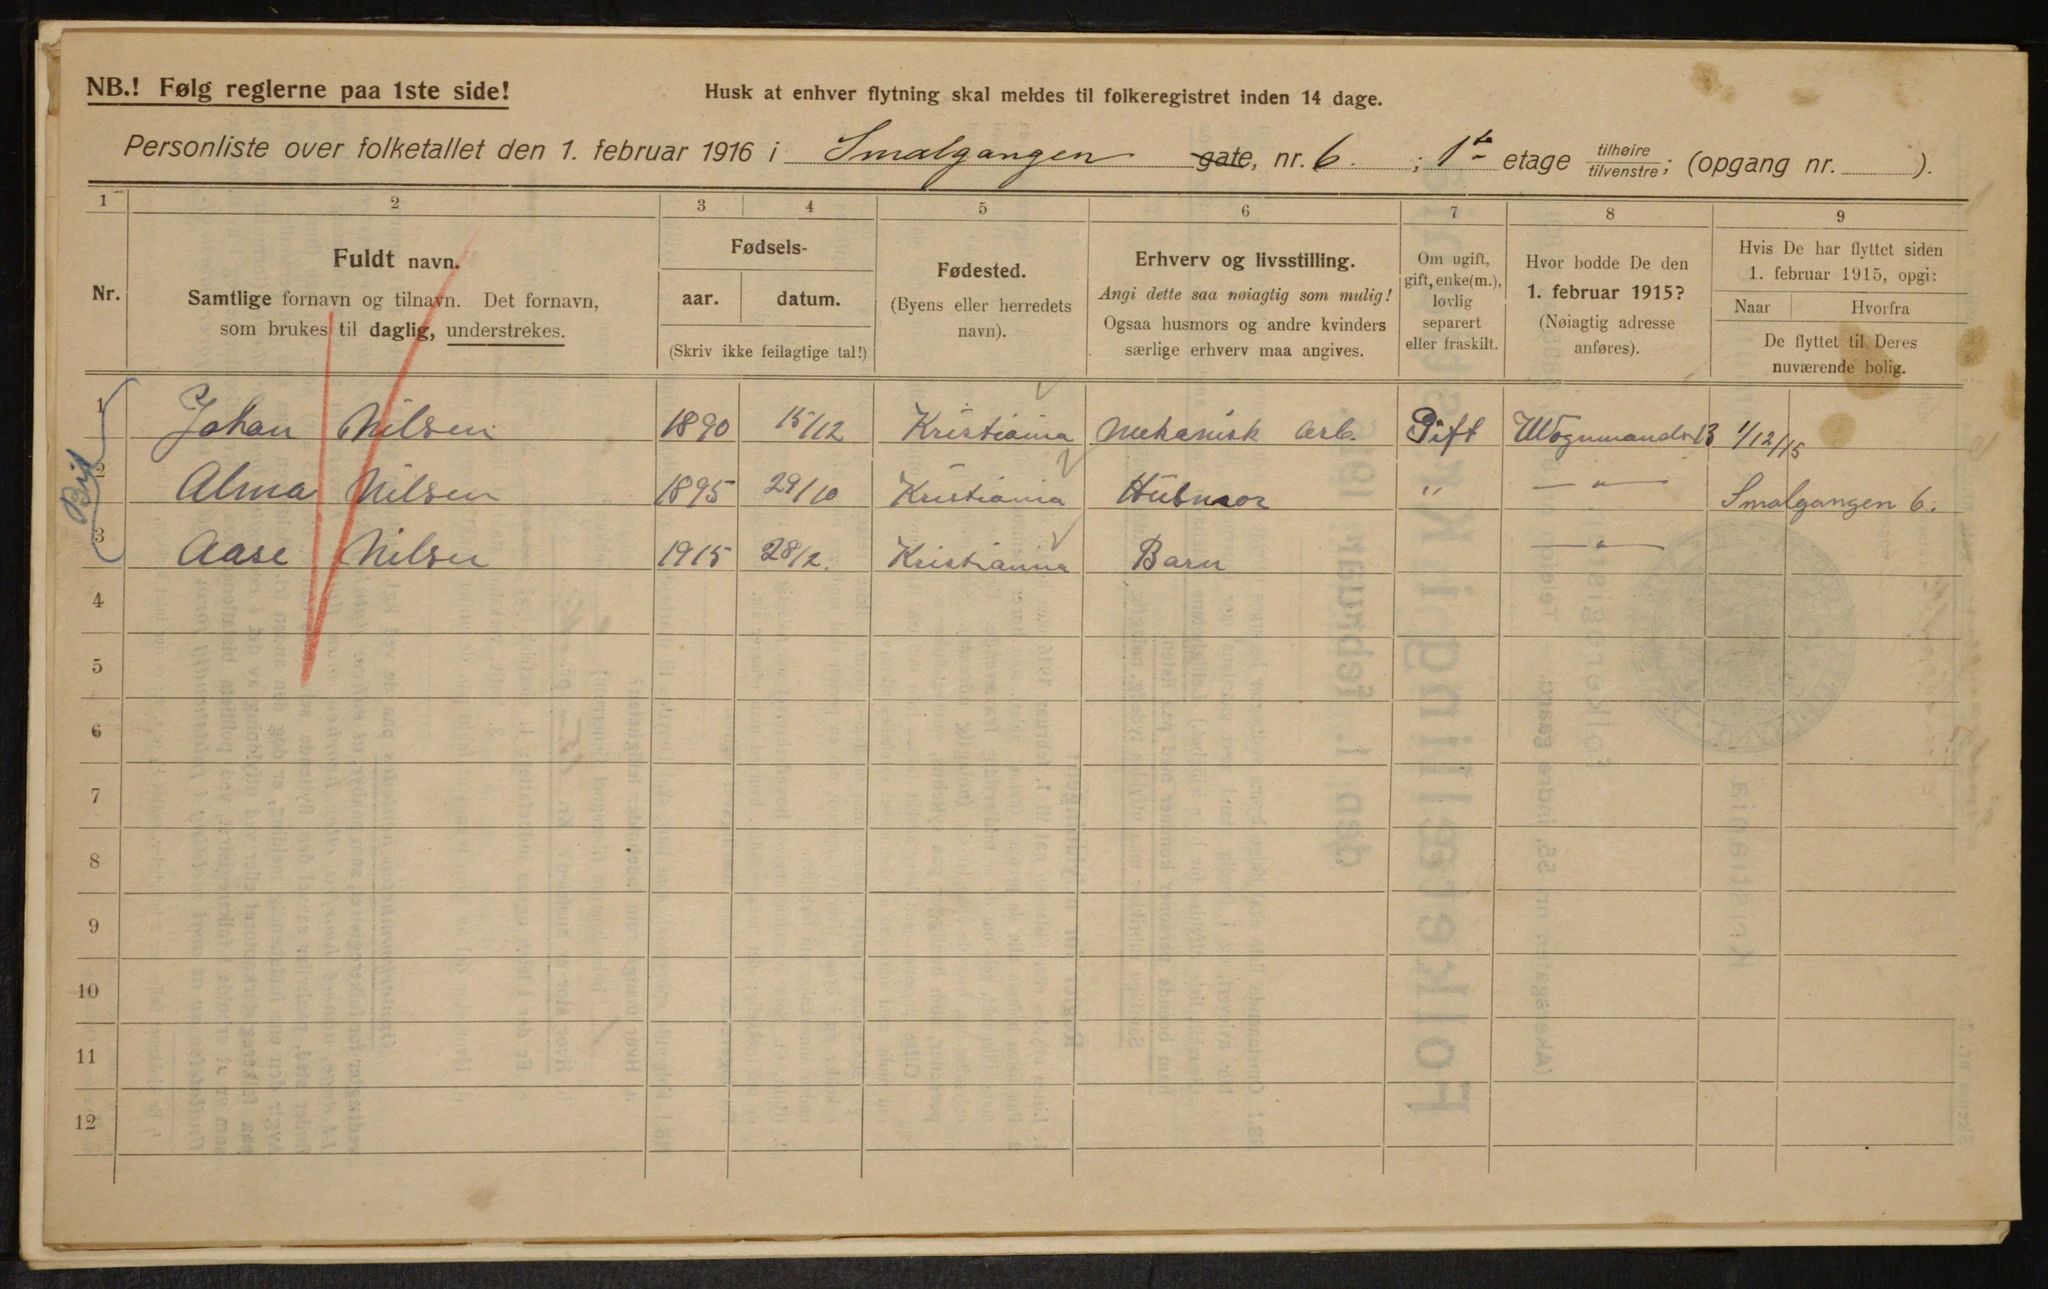 NB.! Følg reglerne paa 1ste side!
Husk at enhver flytning skal meldes til folkeregistret inden 14 dage.
Personliste over folketallet den 1. februar 1916 i Smalgangen gate, nr. 6. ; 1ste etage tilhøire/tilvenstre; (opgang nr. ).
1 2 3 4 5 6 7 8 9
Nr.
Fuldt navn.
Samtlige fornavn og tilnavn. Det fornavn,
som brukes til daglig, understrekes.
Fødsels-
aar. datum.
(Skriv ikke feilagtige tal!)
Fødested.
(Byens eller herredets
navn).
Erhverv og livsstilling.
Angi dette saa nøiagtig som mulig!
Ogsaa husmors og andre kvinders
særlige erhverv maa angives.
Om ugift,
gift, enke(m.),
lovlig
separert
eller fraskilt.
Hvor bodde De den
1. februar 1915?
(Nøiagtig adresse
anføres).
Hvis De har flyttet siden
1. februar 1915, opgi:
Naar Hvorfra
De flyttet til Deres
nuværende bolig.
1 Johan Nilsen 1890 15/12 Kristiania Mekanisk Arb. Gift 13 1/12/15
2 Alma Nilsen 1895 29/10 Kristiania Husmor " — " — Smalgangen 6.
3 Aase Nilsen 1915 28/2. Kristiania Barn — " —
4
5
6
7
8
9
10
11
12